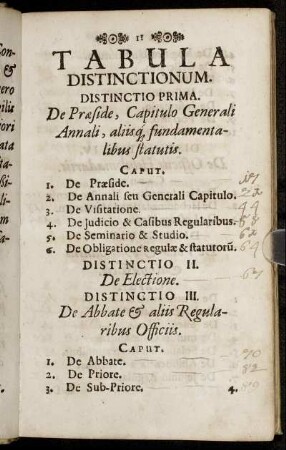 11
TABULA
DISTINCTIONUM.
DISTINCTIO PRIMA.
De Præside, Capitulo Generali
Annali, aliisq; fundamenta-
libus statutis.
CAPUT.
1. De Præside.
2. De Annali seu Generali Capitulo. 22
3. De Visitatione. 44
4. De Judicio & Casibus Regularibus. 58
5. De Seminario & Studio. 62
6. De Obligatione Regulæ & statutorū. 64
DISTINCTIO II.
De Electione. 67
DISTINCTIO III.
De Abbate & aliis Regula-
ribus Officiis.
CAPUT.
1. De Abbate. 70
2. De Priore. 82
3. De Sub-Priore. 4.